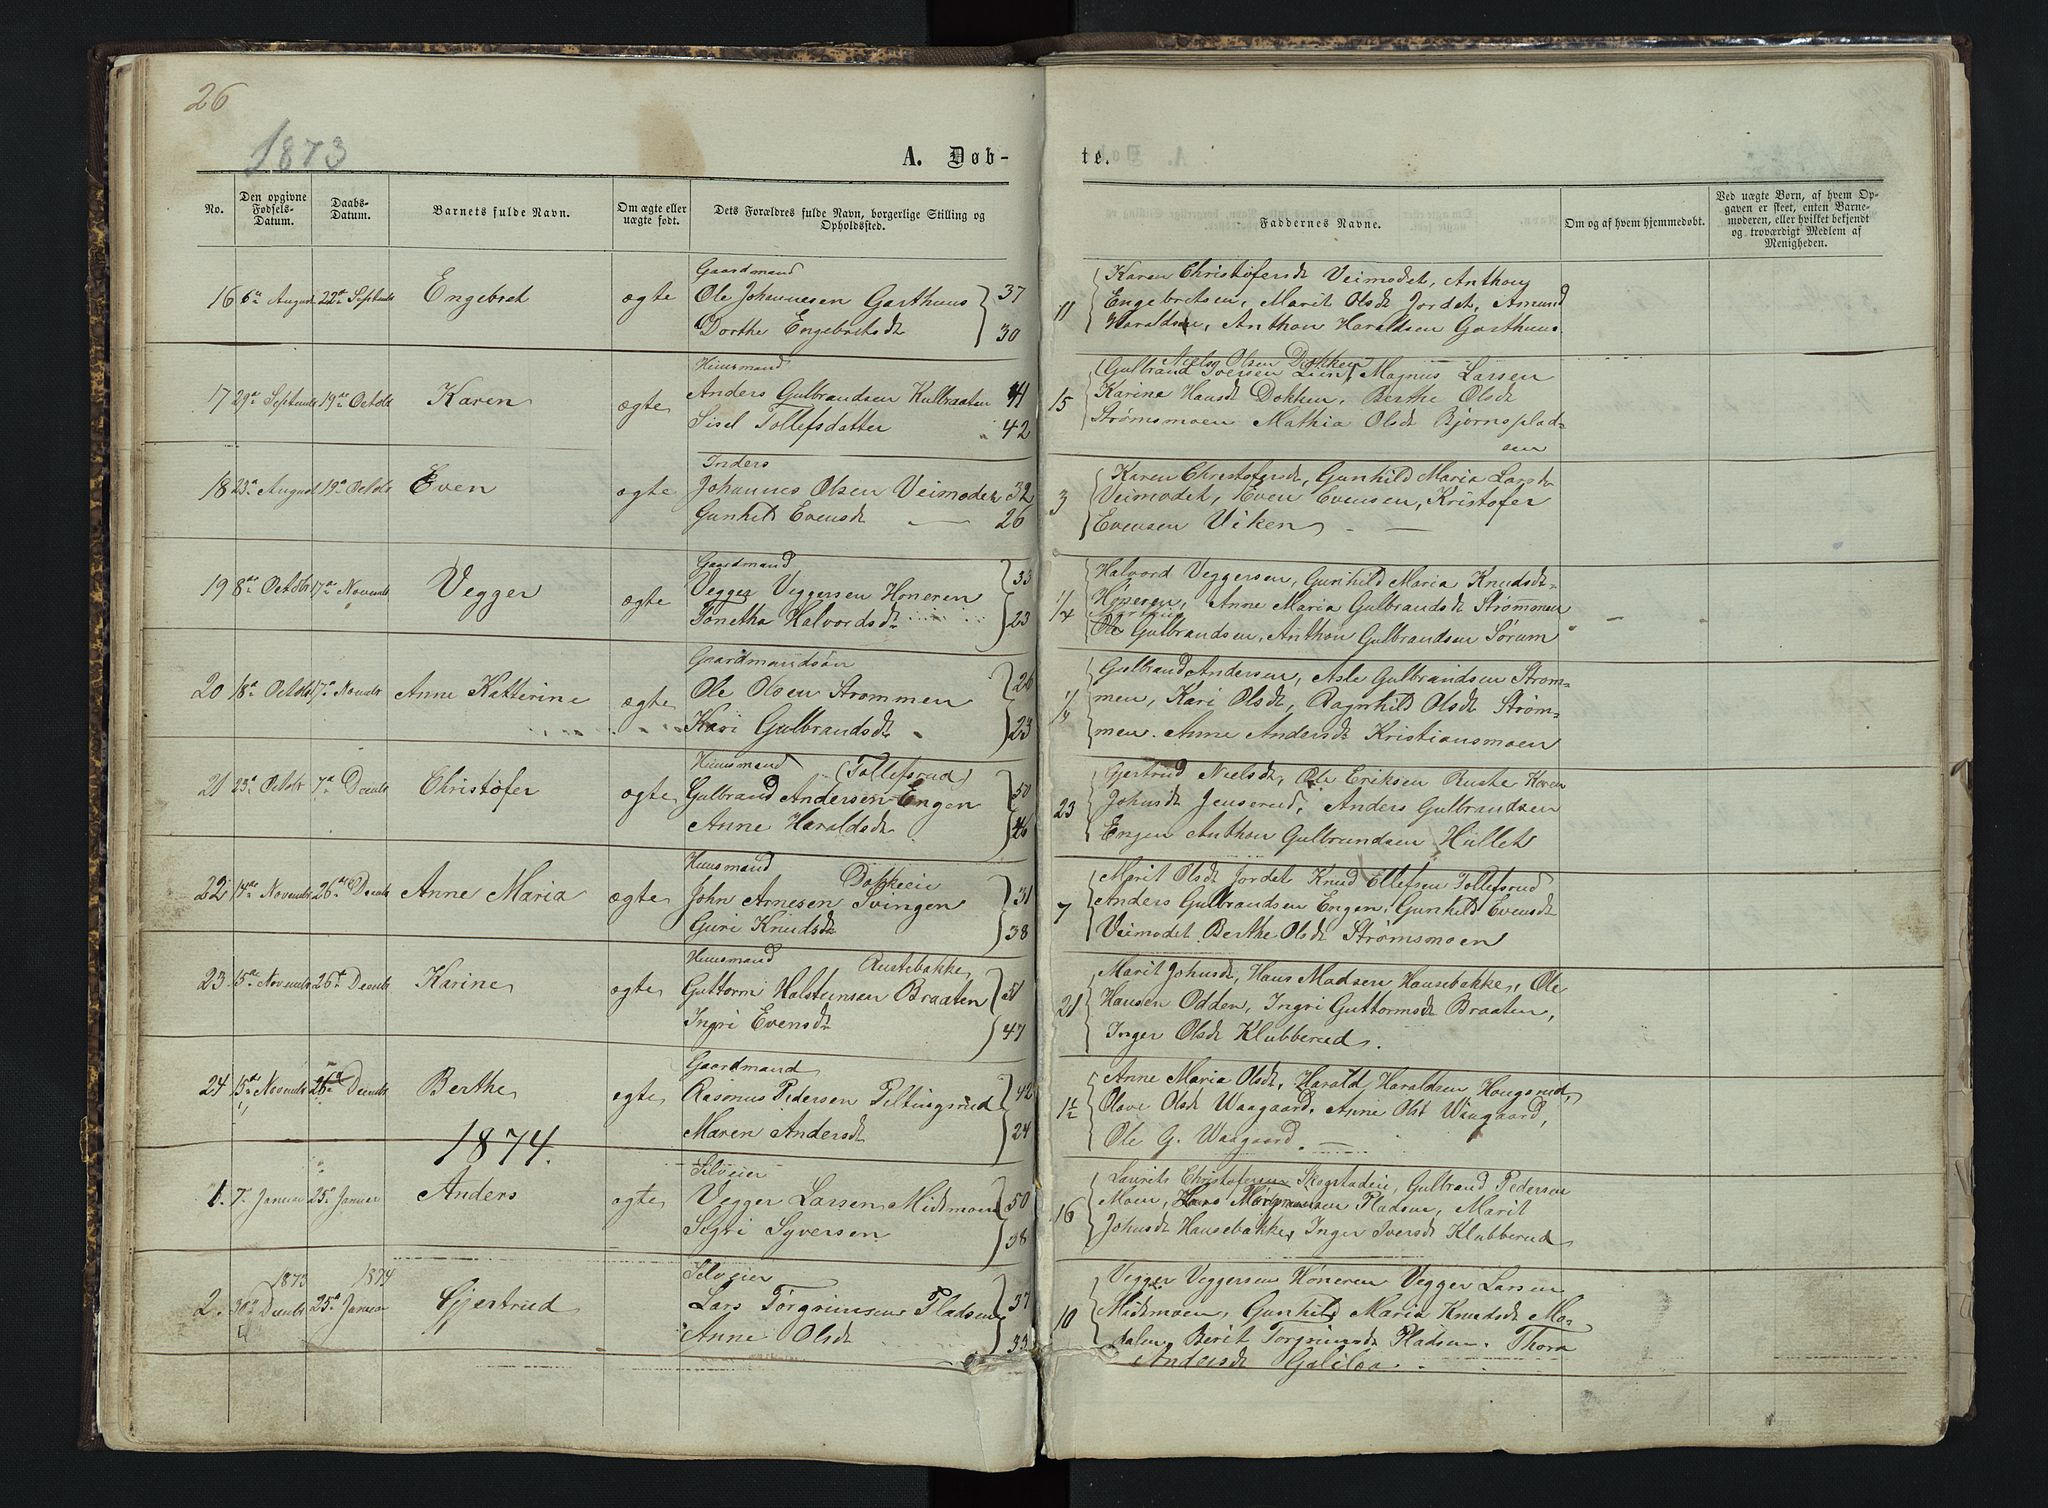 26
1873
A. Døb-
te.
No.
Den opgivne Fødsels-Datum.
Daabs-Datum.
Barnets fulde Navn.
Om ægte eller uægte født.
Dets Forældres fulde Navn, borgerlige Stilling og Opholdssted.
Faddernes Navne.
Om og af hvem hjemmedøbt.
Ved uægte Børn, af hvem Opgaven er skeet, enten Barnemoderen, eller hvilket bekjendt og troværdigt Medlem af Menigheden.
Gaardmand
16 6te August 22de Septembr Engebret ægte Ole Johannesen Garthuus 37
Dorthe Engebretsdt 30
11 Karen Christofersdt Veimodet, Anthon
Engebretsen, Marit Olsdt Jordet, Amund
Haraldsen, Anthon Haraldsen Garthuus
Huusmand
17 29de Septembr 19de Octobr Karen ægte Anders Gulbrandsen Kulbraaten 41
Sisel Tollefsdatter 42
Niels Olsen Dokken
15 Gulbrand Iversen Lien, Magnus Larsen
Karine Hansdt Dokken, Berthe Olsdt
Strømsmoen Mathia Olsdt Bjørnsplad-
sen
Inders
18 23de August 19de Octobr Even ægte Johannes Olsen Veimodet 32
Gunhild Evensdt 26
3 Karen Christofersdt, Gunhild Maria Larsdt
Veimodet, Even Evensen, Kristofer
Evensen Viken
Gaardmand
19 8de Octobr 17de Novembr Vegger ægte Vegger Veggersen Høneren 33
Tonetha Halvordsdt 23
1/4 Halvord Veggersen, Gunhild Maria Knudsdt
Høneren, Anne Maria Gulbrandsdt Strømmen
Ole Gulbrandsen, Anthon Gulbrandsen Sørum
Gaardmandsøn
20 18de Octobr 17de Novembr Anne Katterine ægte Ole Olsen Strømmen 26
Kari Gulbrandsdt 23
1/4 Gulbrand Andersen, Asle Gulbrandsen Strøm-
men, Kari Olsdt, Ragnhild Olsdt Strøm-
men. Anne Andersdt Kristiansmoen
Huusmand (Tollefsrud)
21 23de Octobr 7de Decmbr Christofer ægte Gulbrand Andersen Engen 50
Anne Haraldsdt 46
23 Gjertrud Nielsdt, Ole Eriksen Ruste Karen
Johnsdt Jenserud, Anders Gulbrandsen
Engen Anthon Gulbrandsen Hullet
Huusmand Dokken
22 14de Novembr 26de Decmbr Anne Maria ægte John Arnesen Svingen 31
Guri Knudsdt 38
7 Marit Olsdt Jordet Knud Ellefsen Tollefsrud
Anders Gulbrandsen Engen, Gunhild Evensdt
Veimodet Berthe Olsdt Strømsmoen
Huusmand Rustebakke
23 15de Novembr 26de Decmbr Karine ægte Guttorm Halsteinsen Braaten 51
Ingri Evensdt 47
21 Marit Johnsdt, Hans Madsen Hansebakke, Ole
Hansen Odden, Ingri Guttormsdt Braaten,
Inger Olsdt Klubberud.
Gaardmand
24 15de Novembr 26de Decmbr Berthe ægte Rasmus Pedersen Peltingsrud 42
Maren Andersdt 24
1½ Anne Maria Olsdt, Harald Haraldsen Hougsrud,
Olave Olsdt Waagaard, Anne Olsdt Waagaard,
Ole G. Waagaard.
1874.
Selveier
1. 7. Januar 25de Januar Anders ægte Vegger Larsen Midtmoen 50
Sigri Syversen 38
16 Laurits Christofersen Skogstadeie, Gulbrand Pedersen
Moen, Hans Pladsen, Marit
Johnsdt Hansebakke, Inger Iversdt Klubberud
1873 1874 Selveier
2. 30de Decmbr 25de Januar Gjertrud Lars Torgrimsen Pladsen 37
Anne Olsdt 33
10 Vegger Veggersen Høneren Vegger Larsen
Midtmoen, Gunhild Maria Knudsdt Mo-
Berit Torgrimsdt Pladsen. Thora
Andersdt Galilæa.